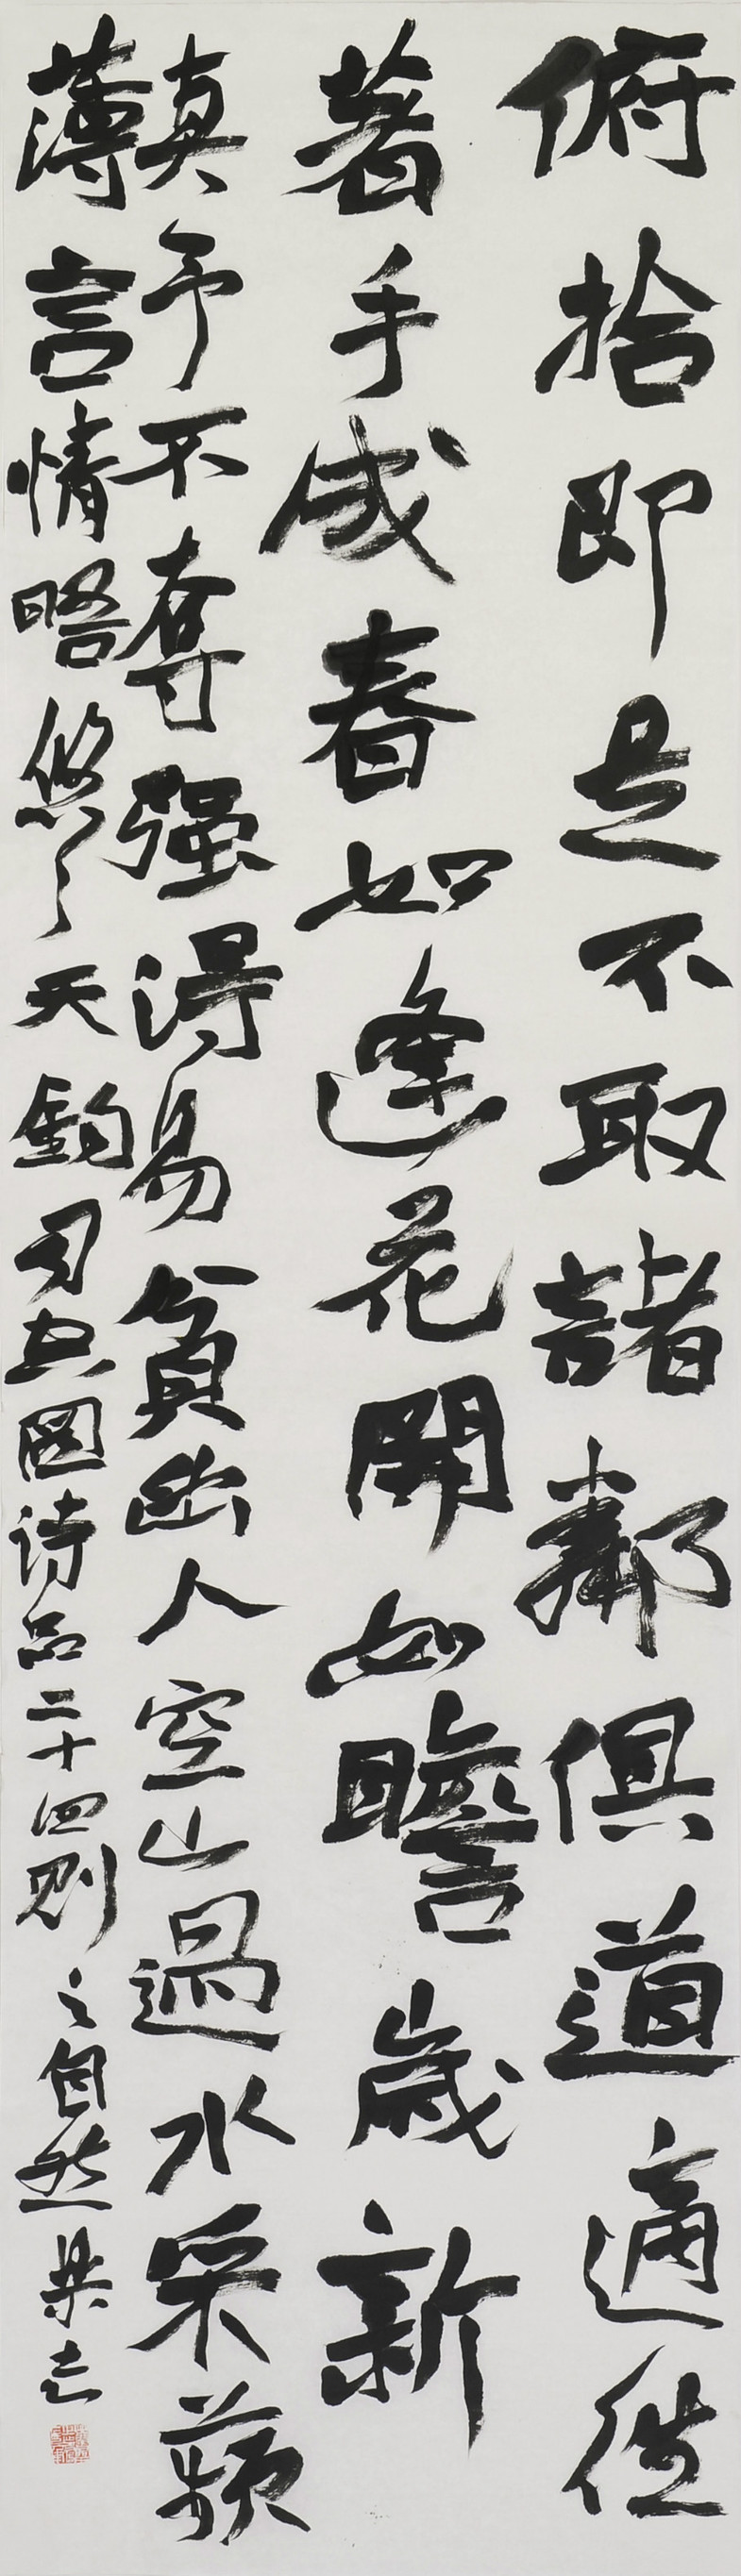 俯拾即是不取諸鄰俱道適往
著手成春如逢花開如瞻歲新
真予不奪强得易貧幽人空山過水采蘋
薄言情晤悠々天鈞司空圖詩品二十四則之自然梁志